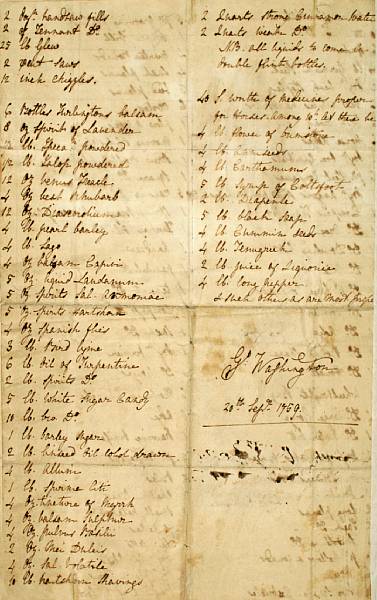 2 Doz. handsaw fills
2 of Tennant Do.
25 lb Glew
2 went saws
12 inch chizzles.
6 Bottles Turlingtons balsam
8 oz Spirit of Lavender
lb. Ipeca. powdered
lb. Jalop powdered
12 Oz. Venice Treacle
4 Oz best Rhubarb
12 Oz. Diascordium
4 lb. pearl barley
4 lb. Sago
4 Oz balsam Capivi
5 Oz liquid Laudanum
5 Oz Spirits Sal. Ammoniac
5 Oz Spirits Hartshorn
4 Oz Spanish flies
3 lb. Bird lyme
6 lb. Oil of Turpentine
2 lb. Spirits Do.
5 lb. white Sugar Candy
10 lb. bro Do.
1 lb. barley Sugar
2 lb. Oil cold drawn
4 lb. Allum
1 lb. Sperma Ceti
4 Oz. tincture of Myrrh
4 Oz. balsam Sulphur
4 Oz. pulvis Basilic
2 Oz. Mer Dulcis
4 Oz. Sal Volatile
lb. hartshorn Shavings
2 Quarts strong Cinnamon Water
2 Quarts weak Do.
NB. all liquids to come in
double flint bottles.
40 S. worth of medicines proper
for Horses. among wh. let there be
4 lb. flower of Brimstone
4 lb. Anniseeds
4 lb. Carthamums
5 lb. Syrup of Coltsfoot
2 lb. Diapente
5 lb black Soap
4 lb Cummin Seeds
4 lb. Fenugreek
2 lb juice of Liquorice
4 lb. long pepper
& such others as are most proper
Go. Washington
20th Sept. 1759.